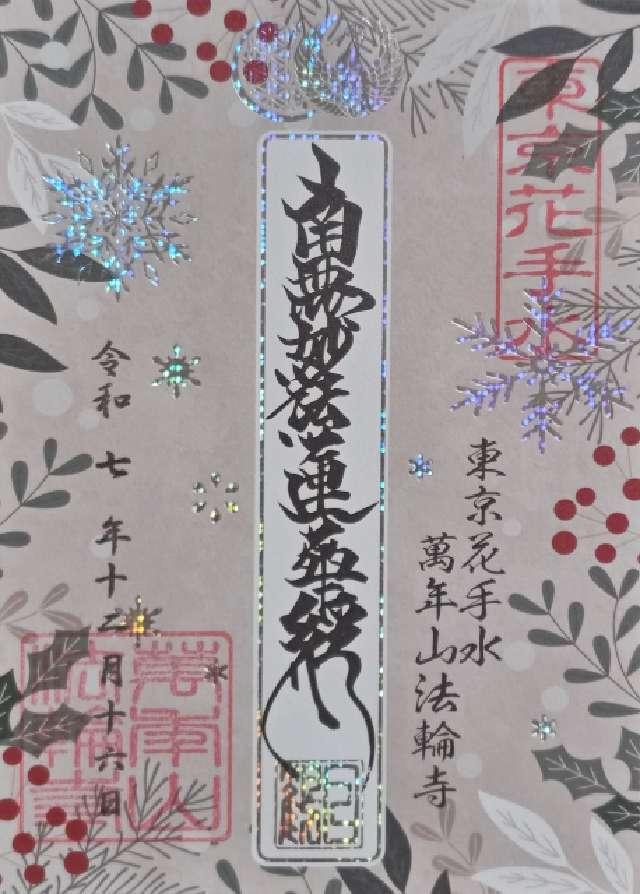 東京花手水
東京花手水
萬年山法輪寺
南無妙法蓮華經
令和七年十二月十六日
萬年山
法輪寺